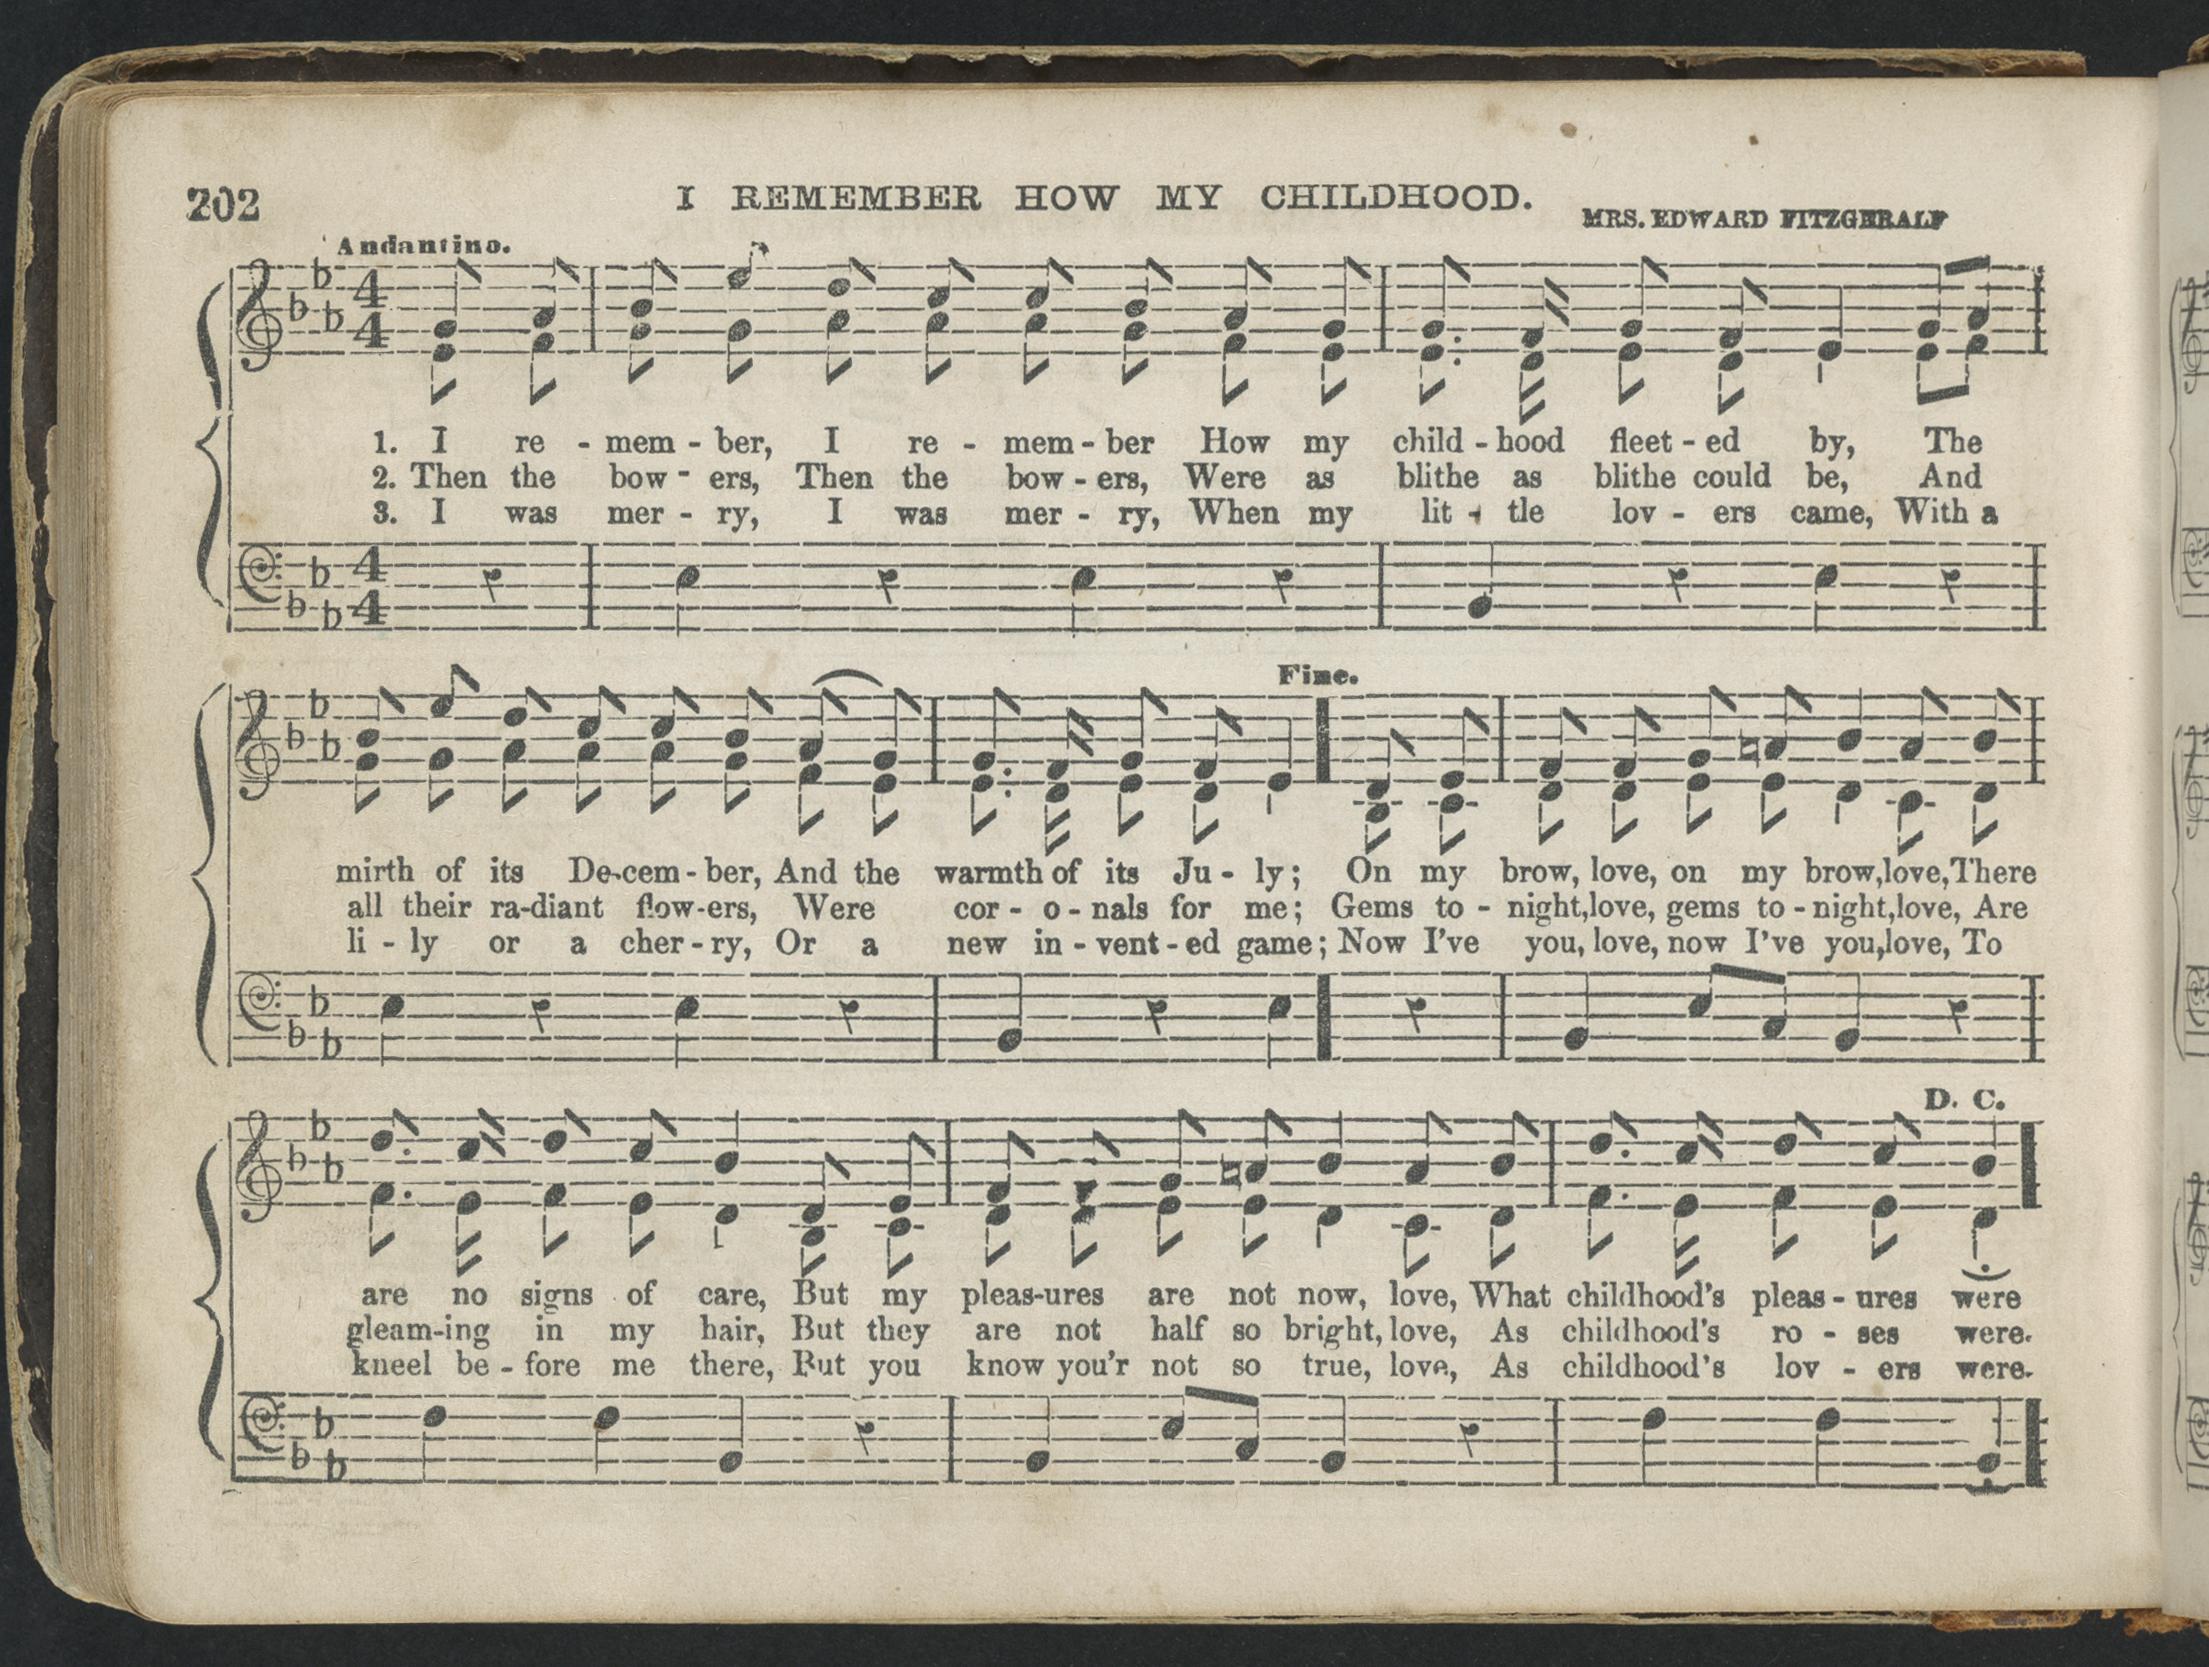 202
I REMEMBER HOW MY CHILDHOOD.
MRS. EDWARD FITZGERALF
Andantino.
4
4
1. I re - mem - ber, I re - mem - ber How my child - hood fleet - ed by, The
2. Then the bow - ers, Then the bow - ers, Were as blithe as blithe could be, And
3. I was mer - ry, I was mer - ry, When my lit - tle lov - ers came, With a
4
4
Fine.
mirth of its De-cem - ber, And the warmth of its Ju - ly; On my brow, love, on my brow,love,There
all their ra-diant flow-ers, Were cor - o - nals for me; Gems to - night,love, gems to - night,love, Are
li - ly or a cher - ry, Or a new in - vent - ed game; Now I've you, love, now I've you,love, To
D. C.
are no signs of care, But my pleas-ures are not now, love, What childhood's pleas - ures were
gleam-ing in my hair, But they are not half so bright, love, As childhood's ro - ses were.
kneel be - fore me there, But you know you'r not so true, love, As childhood's lov - ers were.